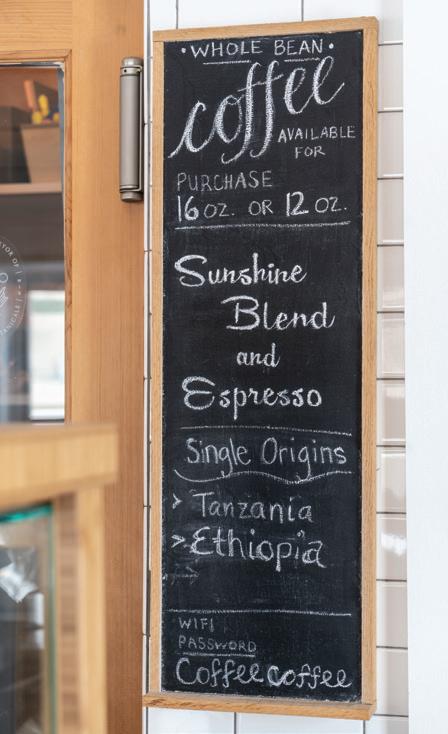 • WHOLE BEAN •
coffee
AVAILABLE
FOR
PURCHASE
16 OZ. OR 12 OZ.
Sunshine
Blend
and
Espresso
Single Origins
> Tanzania
> Ethiopia
WIFI
PASSWORD
Coffeecoffee